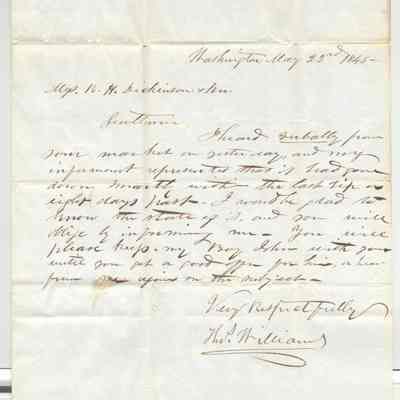 Washington May 23rd 1845 -
Mgs. R. H. Dickinson & Bro.
Gentlemen
I heard verbally from
your market on yesterday, and my
informant represented that it had gone
down much with the last six or
eight days past. I would be glad to
know the state of it, and you will
oblige by informing me - You will
please keep my Boy John with you
until you get a good offer for him, or hear
from me again on the subject -
Very Respectfully
Thos. Williams